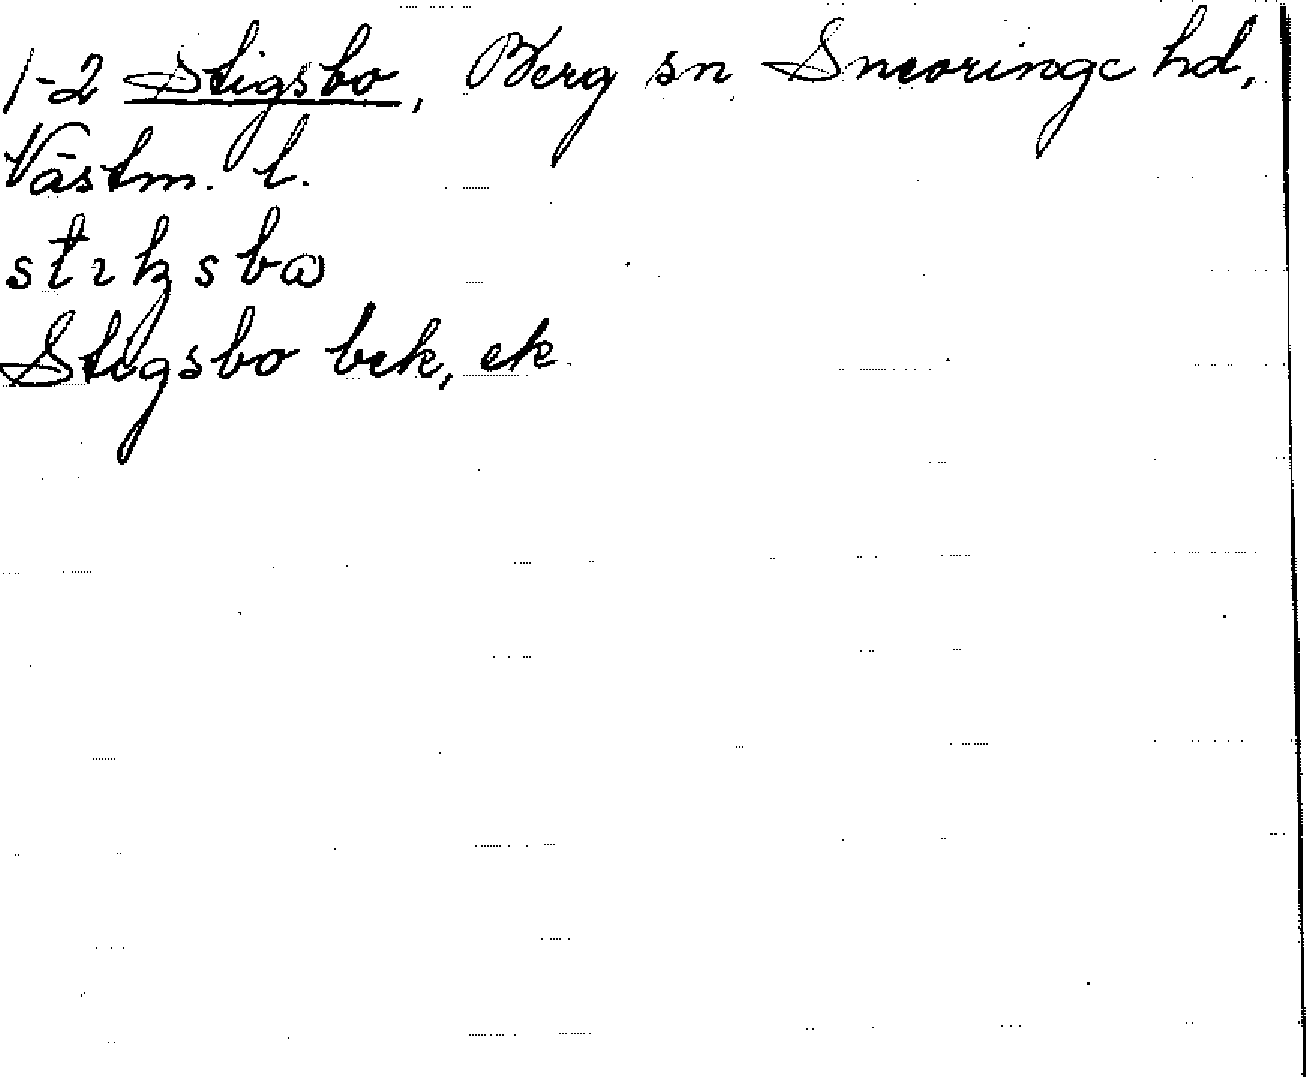 1-2 Stigsbo, Berg sn Snevringe hd,
Västm. l.
Stigsbo bek, ek